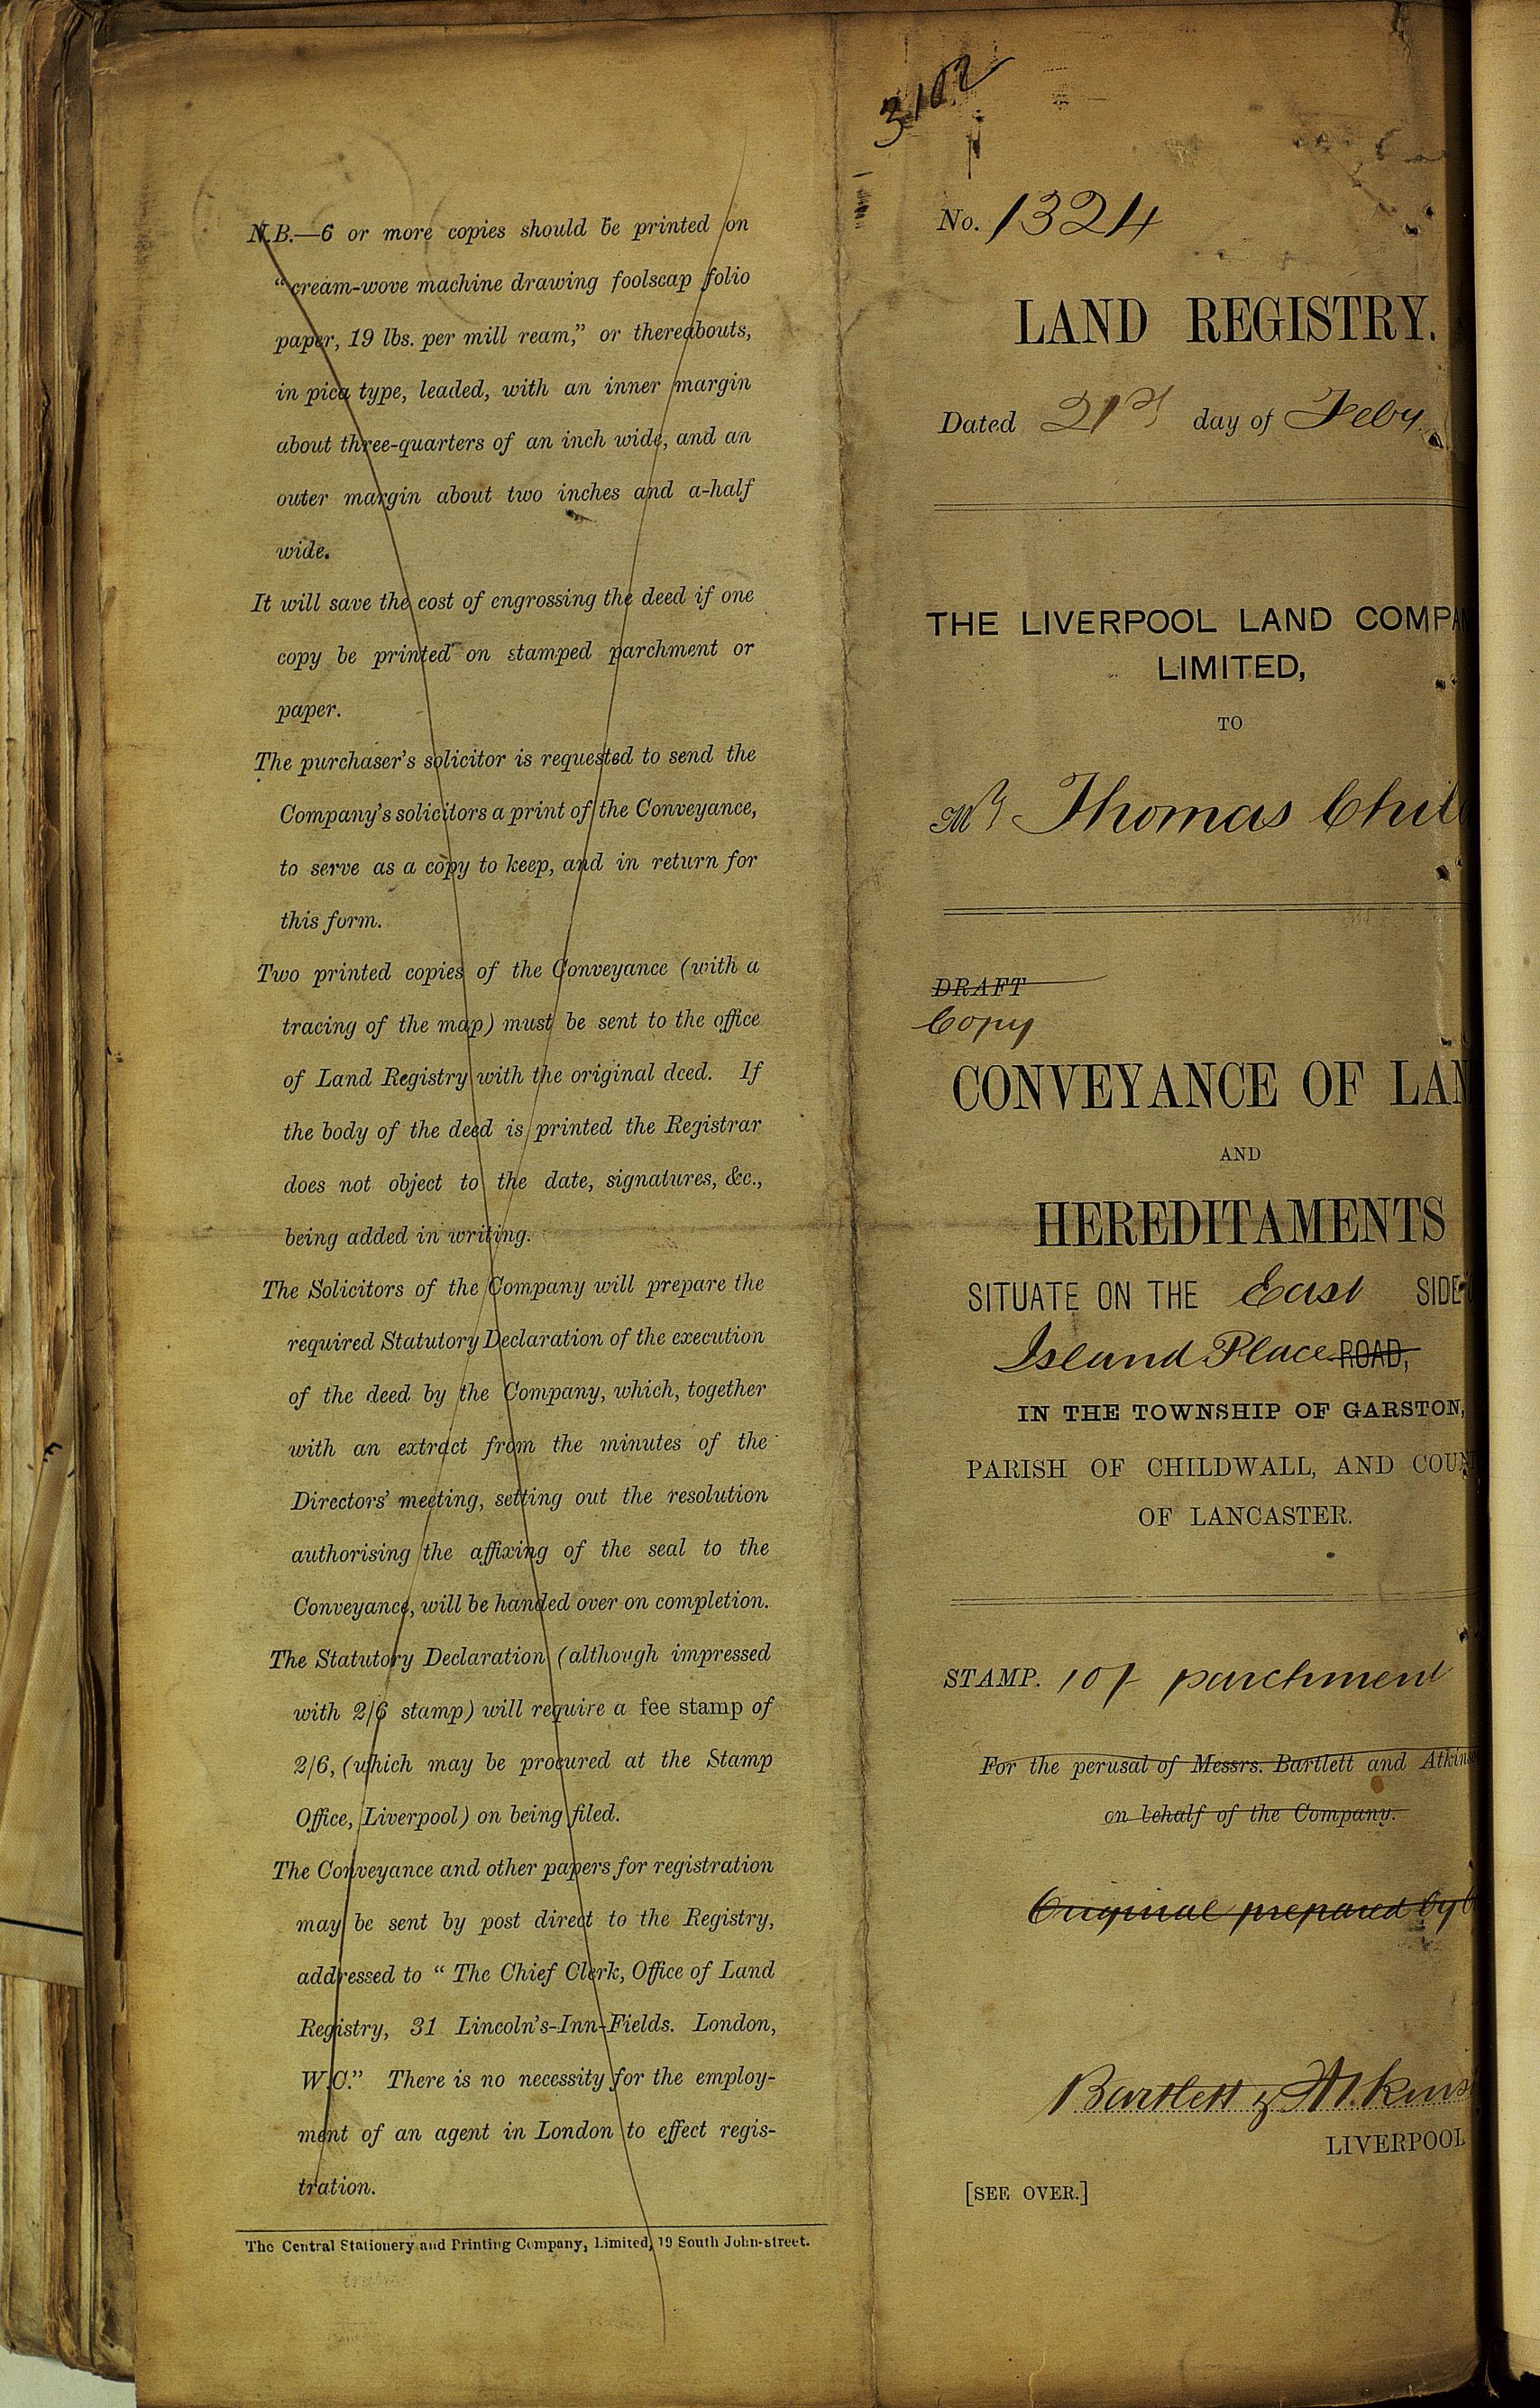 N.B.—6 or more copies should be printed on
“cream-wove machine drawing foolscap folio
paper, 19 lbs. per mill ream,” or thereabouts,
in pica type, leaded, with an inner margin
about three-quarters of an inch wide, and an
outer margin about two inches and a-half
wide.
It will save the cost of engrossing the deed if one
copy be printed on stamped parchment or
paper.
The purchaser's solicitor is requested to send the
Company's solicitors a print of the Conveyance,
to serve as a copy to keep, and in return for
this form.
Two printed copies of the Conveyance (with a
tracing of the map) must be sent to the office
of Land Registry with the original deed. If
the body of the deed is printed the Registrar
does not object to the date, signatures, &c.,
being added in writing.
The Solicitors of the Company will prepare the
required Statutory Declaration of the execution
of the deed by the Company, which, together
with an extract from the minutes of the
Directors' meeting, setting out the resolution
authorising the affixing of the seal to the
Conveyance, will be handed over on completion.
The Statutory Declaration (although impressed
with 2/6 stamp) will require a fee stamp of
2/6, (which may be procured at the Stamp
Office, Liverpool) on being filed.
The Conveyance and other papers for registration
may be sent by post direct to the Registry,
addressed to “ The Chief Clerk, Office of Land
Registry, 31 Lincoln's-Inn-Fields. London,
W.C.” There is no necessity for the employ-
ment of an agent in London to effect regis-
tration.
The Central Stationery and Printing Company, Limited, 19 South John-street.
3102
No. 1324
LAND REGISTRY.
Dated 21st day of Feby
THE LIVERPOOL LAND COMPA
LIMITED,
TO
Mr Thomas Chil
DRAFT
Copy
CONVEYANCE OF LAN
AND
HEREDITAMENTS
SITUATE ON THE East SIDE
Island Place ROAD,
IN THE TOWNSHIP OF GARSTON,
PARISH OF CHILDWALL, AND COUN
OF LANCASTER.
STAMP. 10/ parchment
For the perusal of Messrs. Bartlett and Atkinso
on behalf of the Company.
Original prepared by
Bartlett & Atkins
LIVERPOOL
[SEE OVER.]